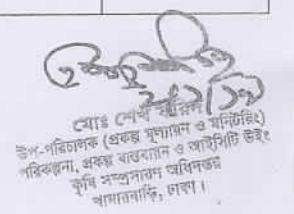 মোঃ শেখ
উপ-পরিচালক (প্রকল্প মূল্যায়ন ও মনিটরিং)
পরিকল্পনা, প্রকল্প বাস্তবায়ন ও আইসিটি উইং
কৃষি সম্প্রসারণ অধিদপ্তর
খামারবাড়ি, ঢাকা।